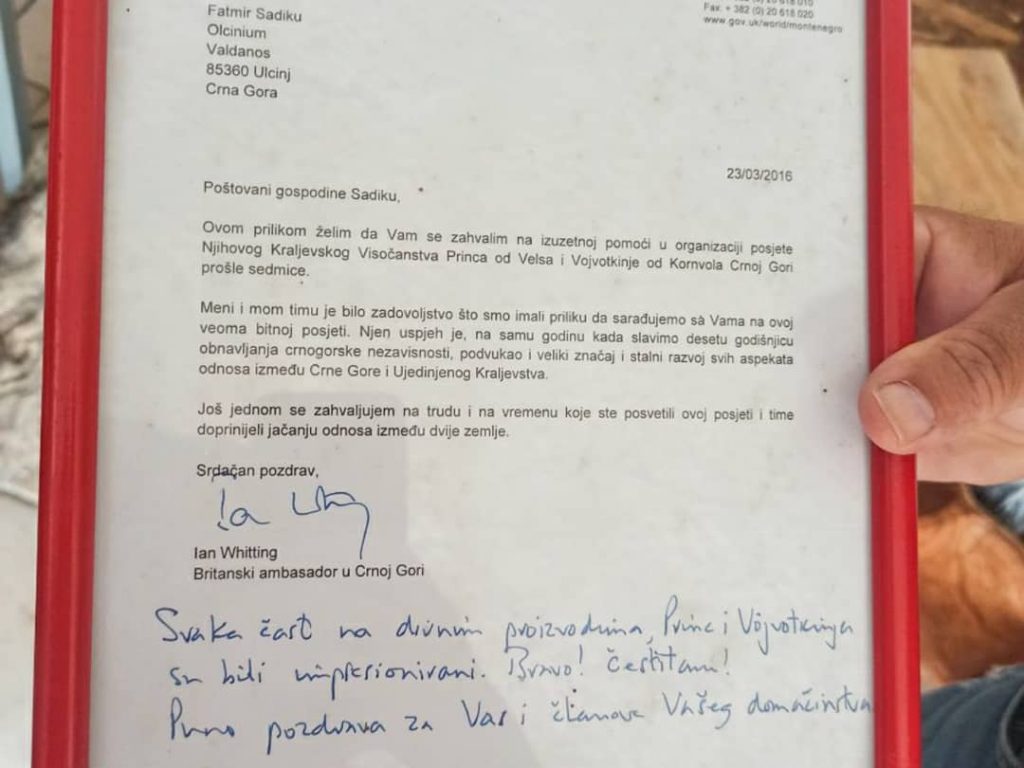 Fatmir Sadiku
Olcinium
Valdanos
85360 Ulcinj
Crna Gora
Fax. + 382 (0) 20 618 020
www.gov.uk/world/montenegro
23/03/2016
Poštovani gospodine Sadiku,
Ovom prilikom želim da Vam se zahvalim na izuzetnoj pomoći u organizaciji posjete
Njihovog Kraljevskog Visočanstva Princa od Velsa i Vojvotkinje od Kornvola Crnoj Gori
prošle sedmice.
Meni i mom timu je bilo zadovoljstvo što smo imali priliku da sarađujemo sa Vama na ovoj
veoma bitnoj posjeti. Njen uspjeh je, na samu godinu kada slavimo desetu godišnjicu
obnavljanja crnogorske nezavisnosti, podvukao i veliki značaj i stalni razvoj svih aspekata
odnosa između Crne Gore i Ujedinjenog Kraljevstva.
Još jednom se zahvaljujem na trudu i na vremenu koje ste posvetili ovoj posjeti i time
doprinijeli jačanju odnosa između dvije zemlje.
Srdačan pozdrav,
Ian Whitting
Britanski ambasador u Crnoj Gori
Svaka čast na divnim proizvodima, Princ i Vojvotkinja
su bili impresionirani. Bravo! čestitam!
Puno pozdrava za Vas i članove Vašeg domaćinstva